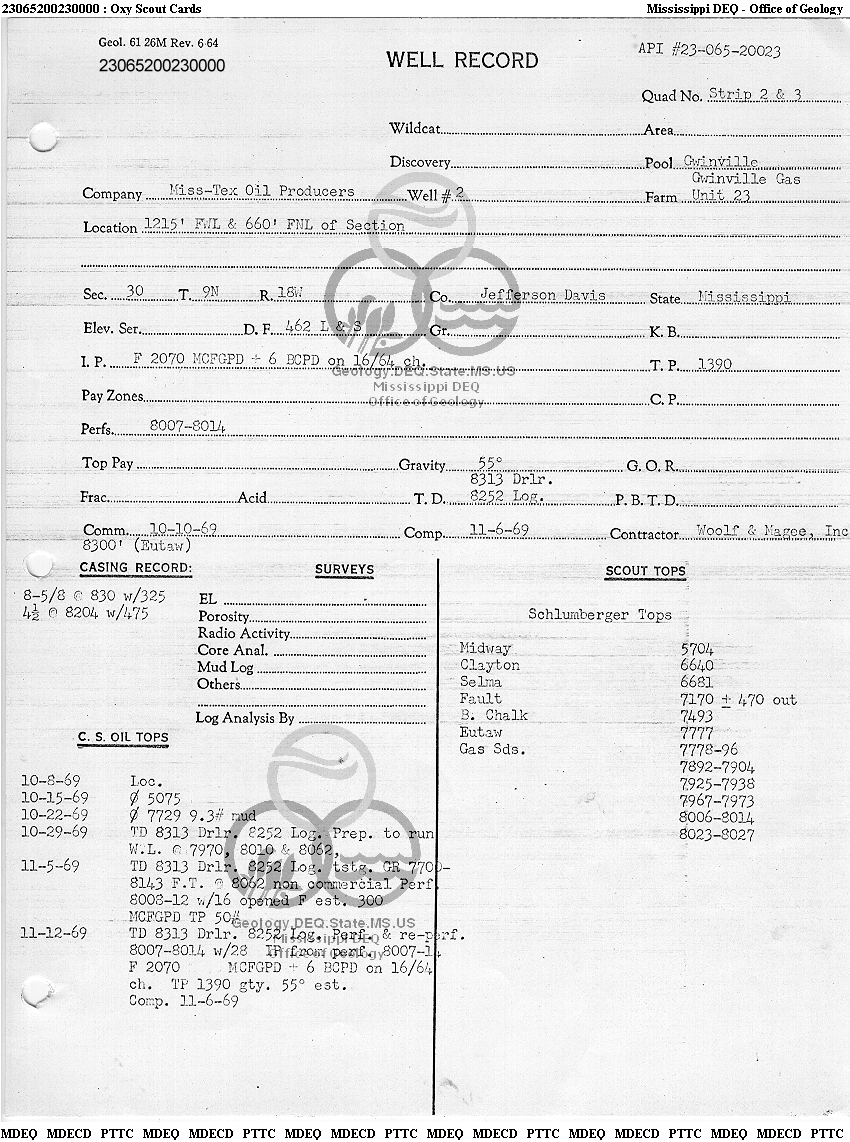 23065200230000 : Oxy Scout Cards Mississippi DEQ - Office of Geology
Geol. 61 26M Rev. 6-64
23065200230000
WELL RECORD
API #23-065-20023
Quad No. Strip 2 & 3
Wildcat Area
Discovery Pool Gwinville
Gwinville Gas
Company Miss-Tex Oil Producers Well # 2 Farm Unit 23
Location 1215' FWL & 660' FNL of Section
Sec. 30 T. 9N R. 18W Co. Jefferson Davis State Mississippi
Elev. Ser. D. F. 462 L & S Gr. K. B.
I. P. F 2070 MCFGPD + 6 BCPD on 16/64 ch. T. P. 1390
Geology.DEQ.State.MS.US
Mississippi DEQ
Office of Geology
Pay Zones C. P.
Perfs. 8007-8014
Top Pay Gravity 55° G. O. R.
8313 Drlr.
Frac. Acid T. D. 8252 Log. P. B. T. D.
Comm. 10-10-69 Comp. 11-6-69 Contractor Woolf & Magee, Inc
8300' (Eutaw)
CASING RECORD: SURVEYS SCOUT TOPS
8-5/8 @ 830 w/325
4½ @ 8204 w/475
EL
Porosity
Radio Activity
Core Anal.
Mud Log
Others
Log Analysis By
Schlumberger Tops
Midway 5704
Clayton 6640
Selma 6681
Fault 7170 ± 470 out
B. Chalk 7493
Eutaw 7777
Gas Sds. 7778-96
7892-7904
7925-7938
7967-7973
8006-8014
8023-8027
C. S. OIL TOPS
10-8-69 Loc.
10-15-69 Ø 5075
10-22-69 Ø 7729 9.3# mud
10-29-69 TD 8313 Drlr. 8252 Log. Prep. to run
W.L. @ 7970, 8010 & 8062,
11-5-69 TD 8313 Drlr. 8252 Log. tstg. GR 7700-
8143 F.T. @ 8062 non commercial Perf.
8008-12 w/16 opened F est. 300
MCFGPD TP 50#
Geology.DEQ.State.MS.US
Mississippi DEQ
Office of Geology
11-12-69 TD 8313 Drlr. 8252 Log. Perf. & re-perf.
8007-8014 w/28 IP from perf. 8007-14
F 2070 MCFGPD + 6 BCPD on 16/64
ch. TP 1390 gty. 55° est.
Comp. 11-6-69
MDEQ MDECD PTTC MDEQ MDECD PTTC MDEQ MDECD PTTC MDEQ MDECD PTTC MDEQ MDECD PTTC MDEQ MDECD PTTC